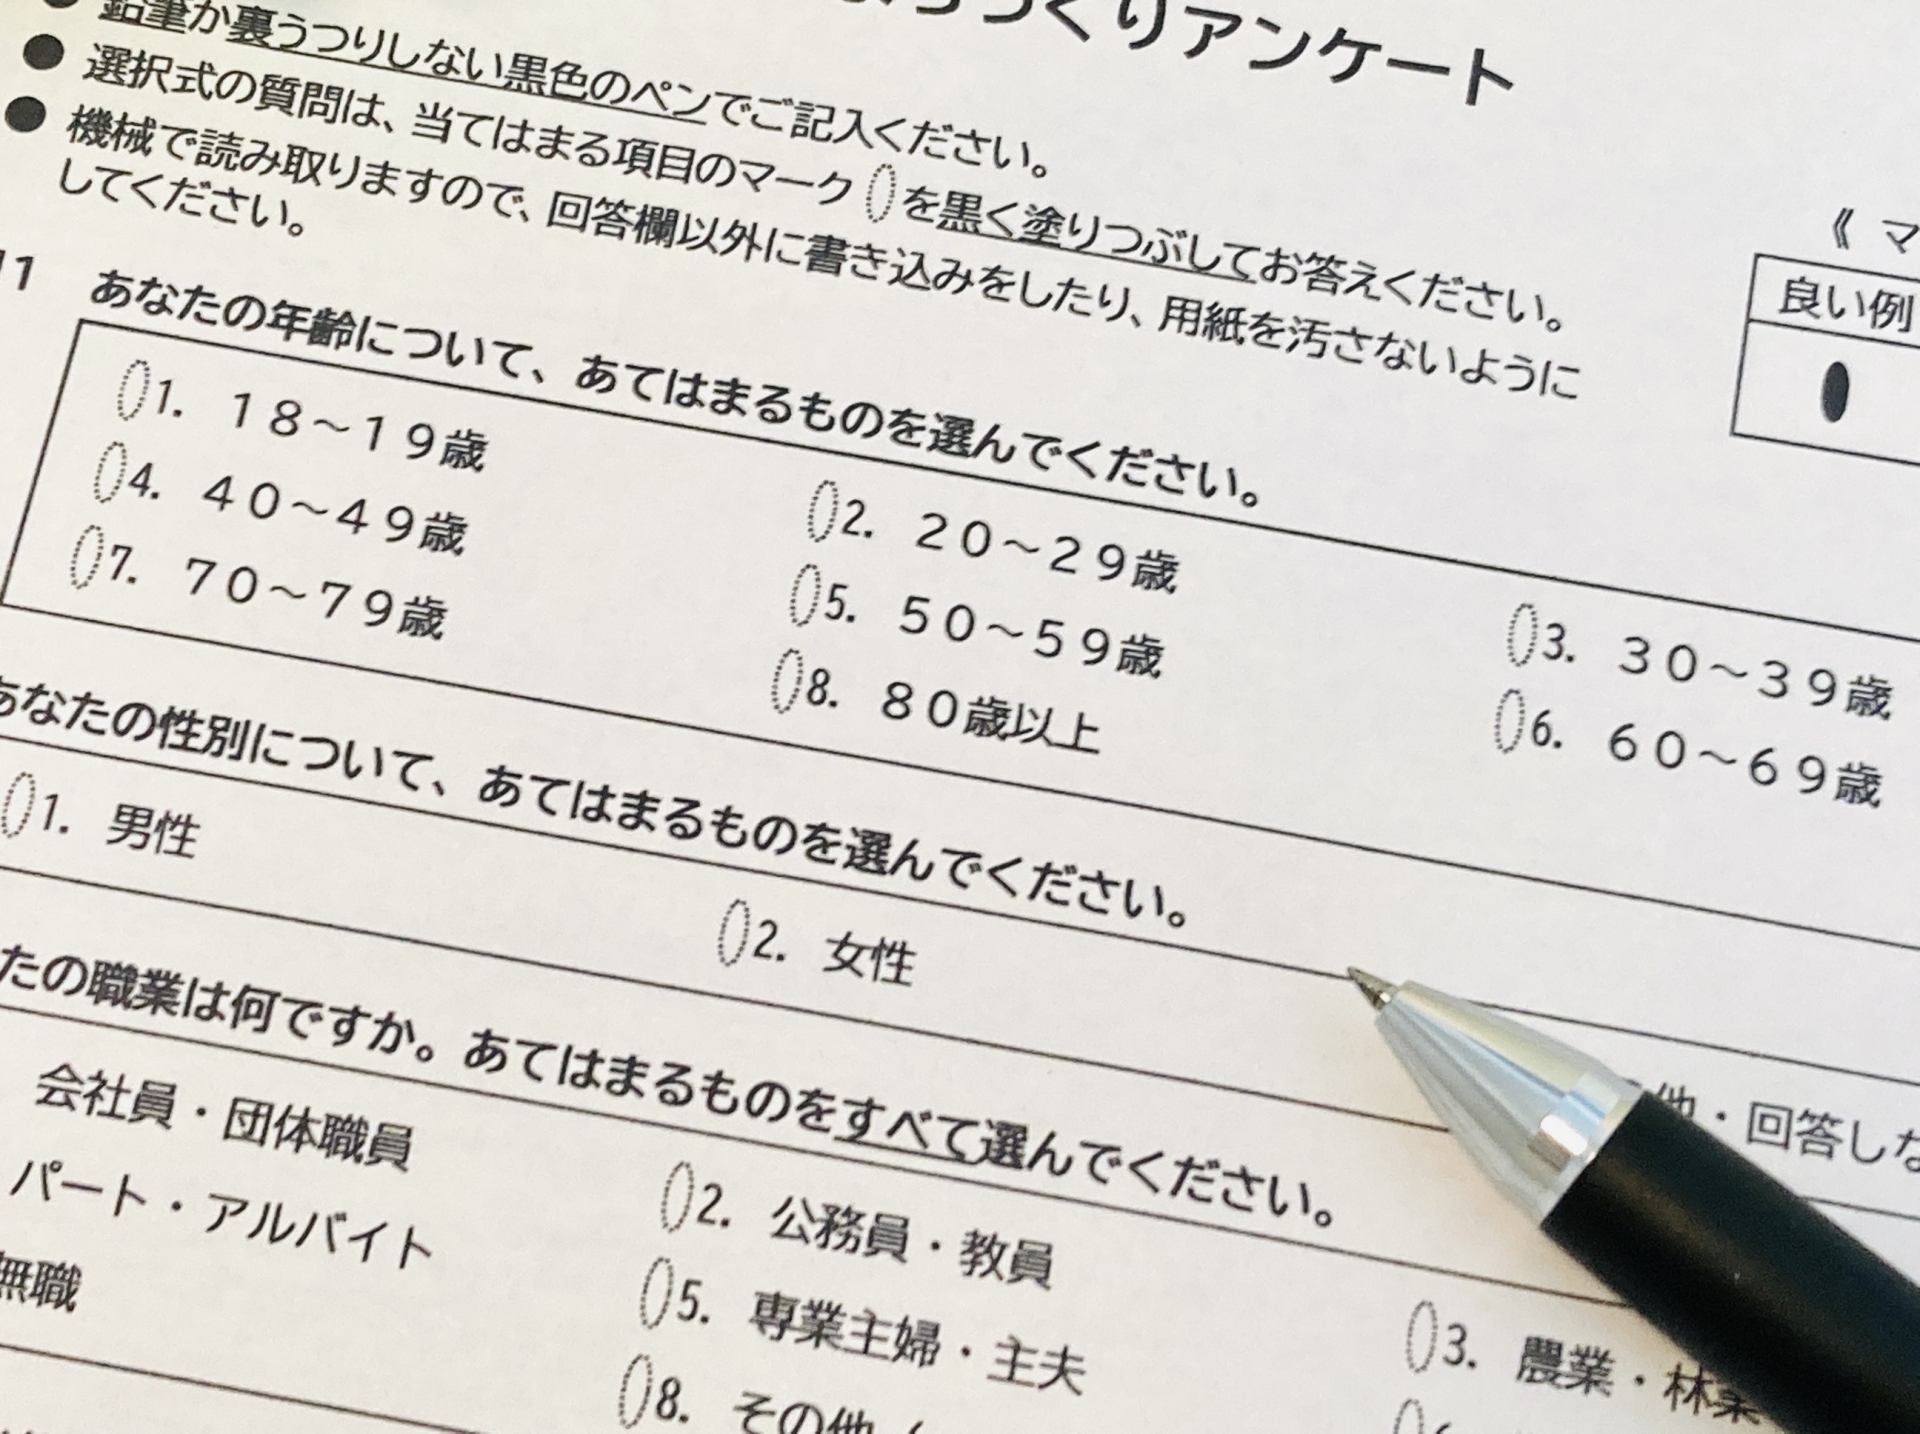 づくりアンケート
鉛筆か裏うつりしない黒色のペンでご記入ください。
● 選択式の質問は、当てはまる項目のマーク を黒く塗りつぶしてお答えください。
● 機械で読み取りますので、回答欄以外に書き込みをしたり、用紙を汚さないように
してください。
《 マ
良い例
1 あなたの年齢について、あてはまるものを選んでください。
1. 18～19歳
2. 20～29歳
3. 30～39歳
4. 40～49歳
5. 50～59歳
6. 60～69歳
7. 70～79歳
8. 80歳以上
あなたの性別について、あてはまるものを選んでください。
1. 男性
2. 女性
他・回答しな
たの職業は何ですか。あてはまるものをすべて選んでください。
会社員・団体職員
2. 公務員・教員
3. 農業・林業
パート・アルバイト
5. 専業主婦・主夫
無職
8. その他（